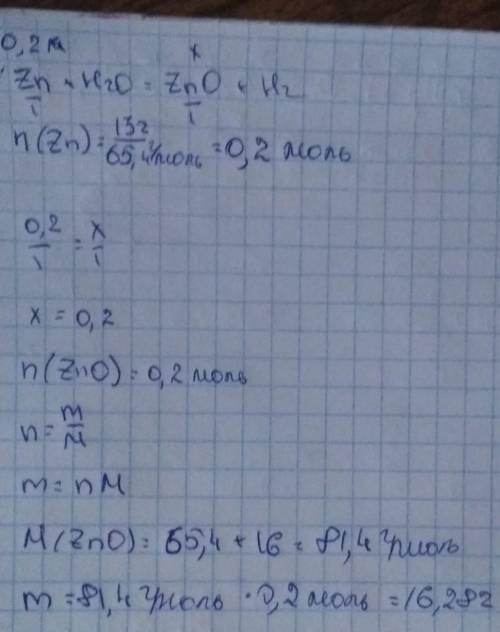 0,2 м
x
Zn + H2O = ZnO + H2
1 1
n(Zn) = 13г / 65,4 г/моль = 0,2 моль
0,2/1 = x/1
x = 0,2
n(ZnO) = 0,2 моль
n = m/M
m = nM
M(ZnO) = 65,4 + 16 = 81,4 г/моль
m = 81,4 г/моль · 0,2 моль = 16,28г